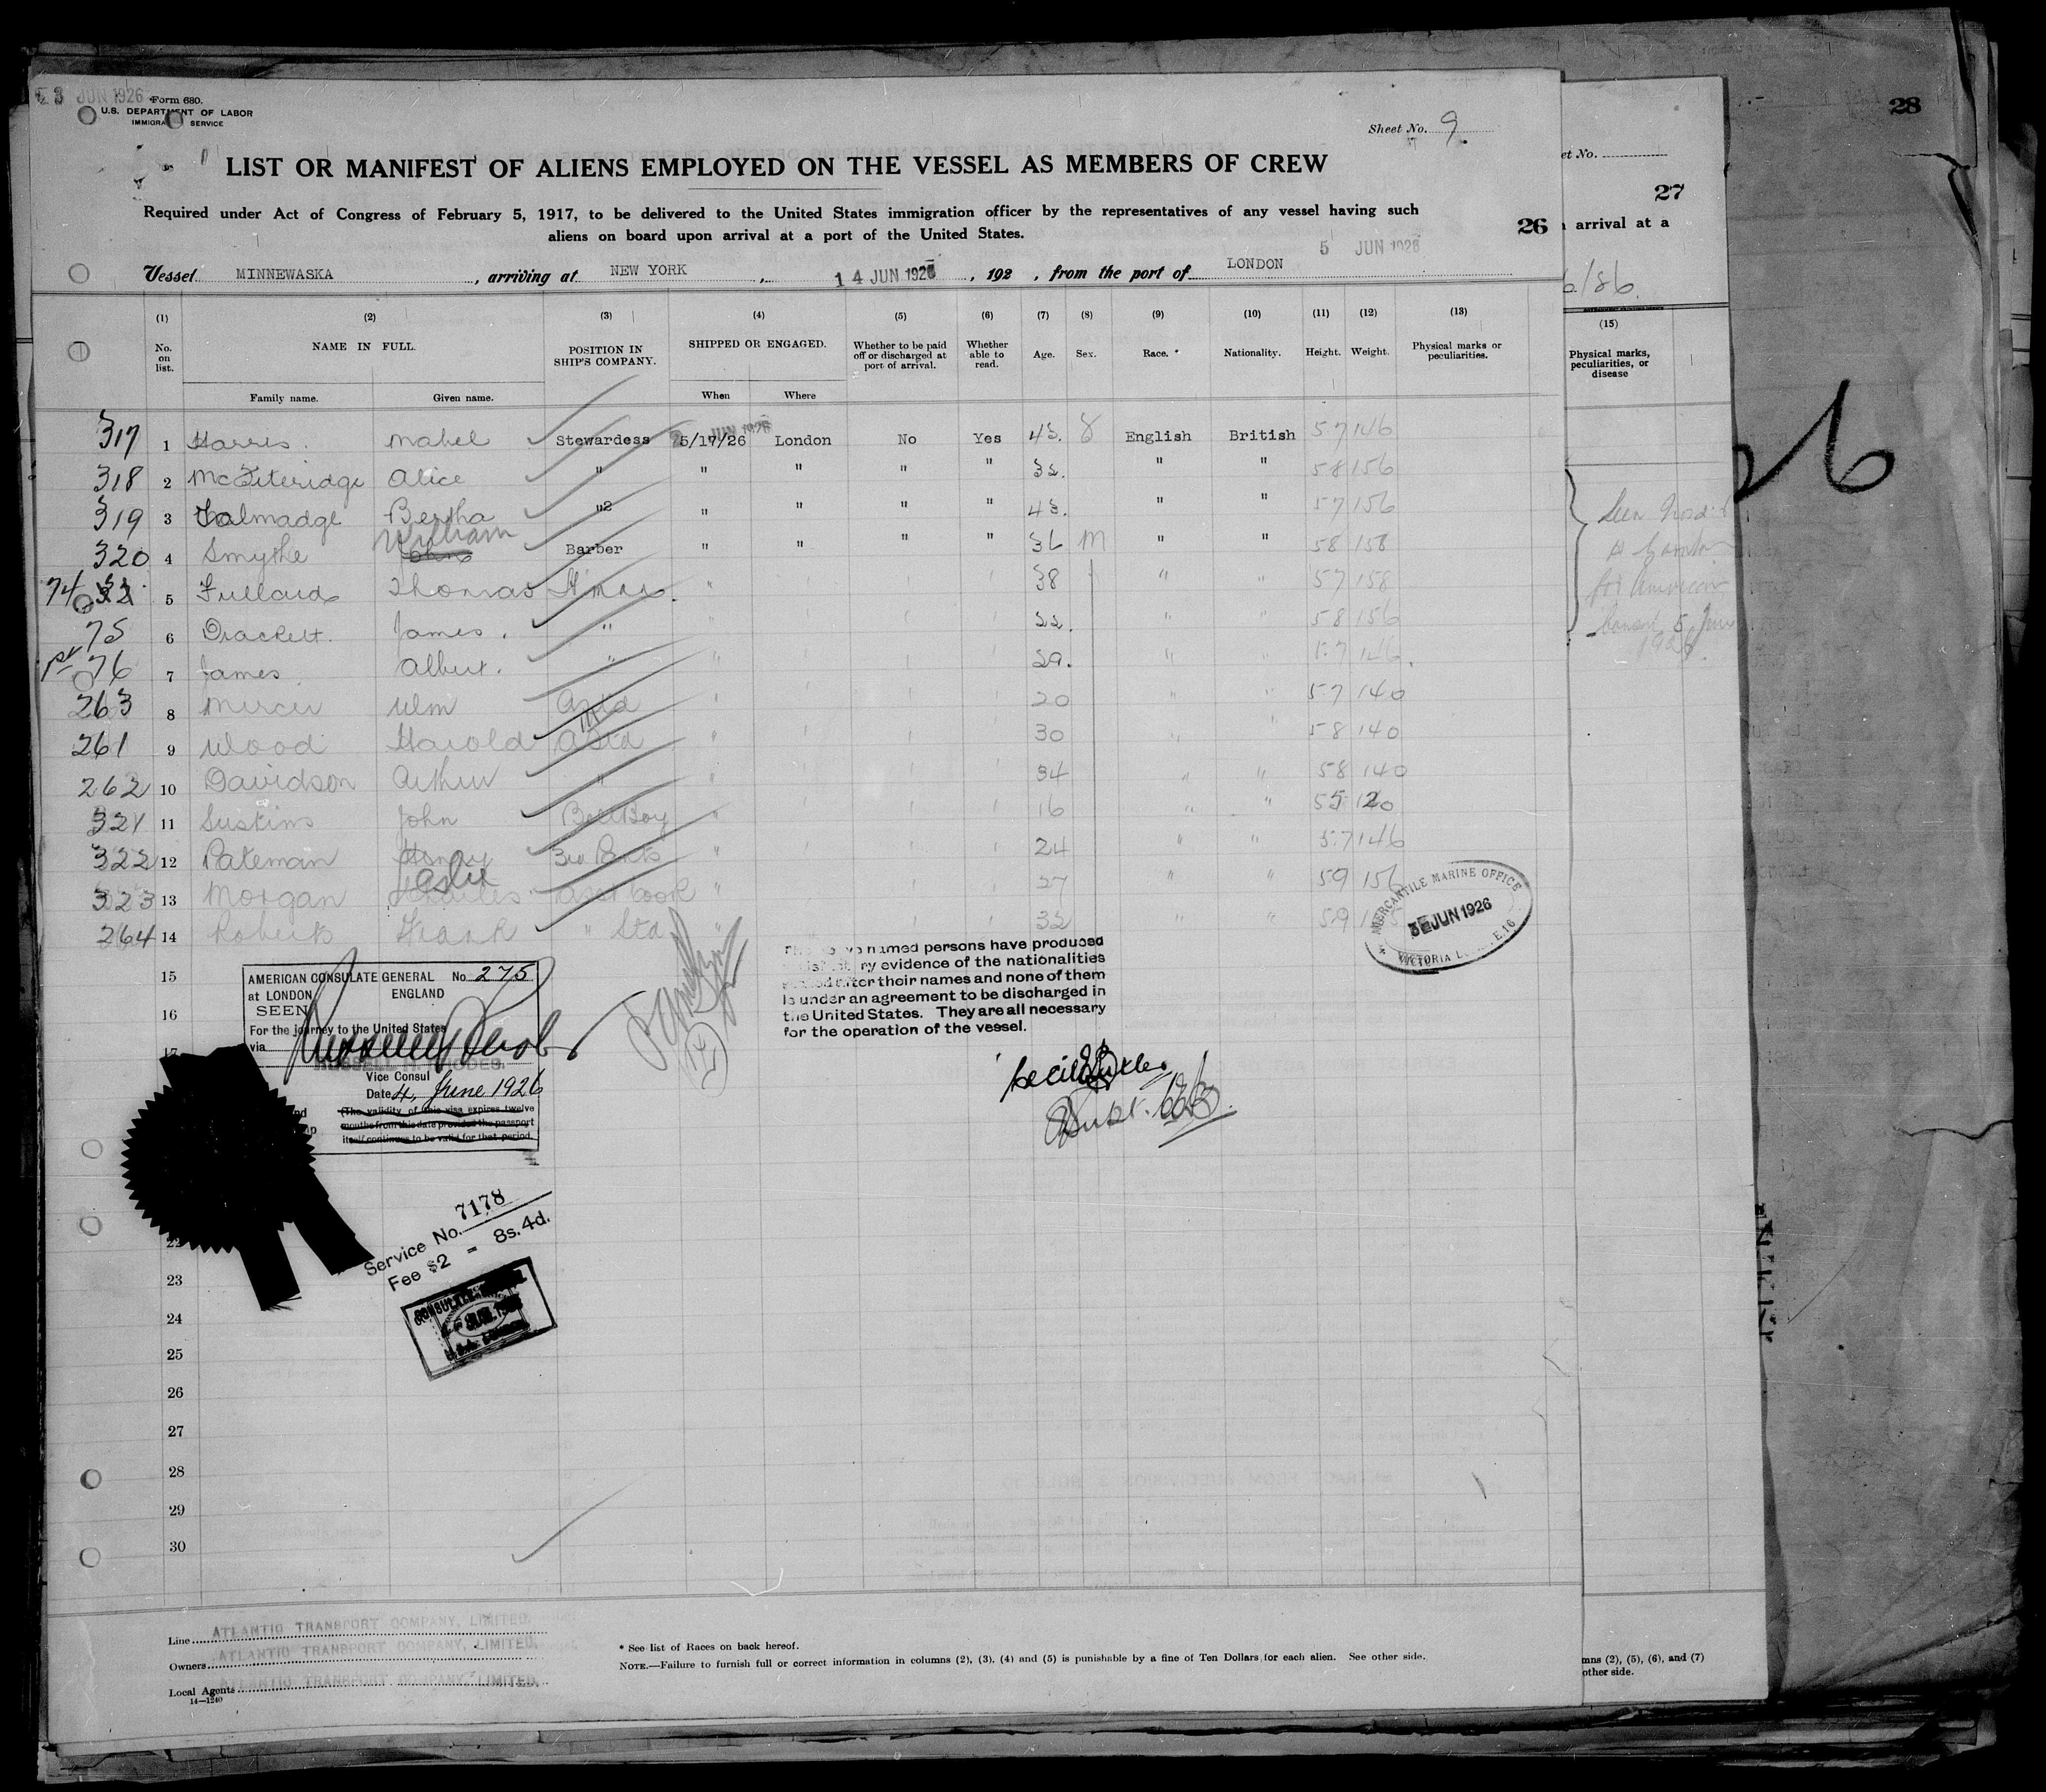 3 JUN 1926 Form 680.
U.S. DEPARTMENT OF LABOR
IMMIGRA SERVICE
28
Sheet No. 9.
et No.
LIST OR MANIFEST OF ALIENS EMPLOYED ON THE VESSEL AS MEMBERS OF CREW
27
Required under Act of Congress of February 5, 1917, to be delivered to the United States immigration officer by the representatives of any vessel having such
aliens on board upon arrival at a port of the United States.
26
arrival at a
5 JUN 1926
Vessel MINNEWASKA, arriving at NEW YORK, 14 JUN 1926, 192 , from the port of LONDON
6/86.
(1) (2) (3) (4) (5) (6) (7) (8) (9) (10) (11) (12) (13)
No. on list. NAME IN FULL. POSITION IN SHIP'S COMPANY. SHIPPED OR ENGAGED. Whether to be paid off or discharged at port of arrival. Whether able to read. Age. Sex. Race.* Nationality. Height. Weight. Physical marks or peculiarities.
(15)
Physical marks, peculiarities, or disease
Family name. Given name. When Where
317 1 Harris. Mabel Stewardess 5/17/26 JUN 1926 London No Yes 43. English British 5.7 146
318 2 Alice " " " " " 32. " " 58 156
319 3 Talmadge Bertha " " " " " 43. " " 57 156
320 4 Smythe William Barber " " " " 36 M " " 58 158
74 5 Fullard Thomas " 38 " " 57 158
75 6 James. " 22. " " 58 156
76 7 James Albert. " " 29. " " 5.7 146
263 8 Mercer Wm " 20 " " 5.7 140
261 9 Wood Harold " 30 " " 58 140
262 10 Davidson Arthur " " 34 " " 58 140
321 11 Sustins John Bell Boy " 16 " " 55 120
322 12 Pateman Henry " 24 " " 5.7 146
Leslie
323 13 Morgan Charles Asst Cook " 27 " " 59 156
264 14 Roberts Frank " Std " 32 " " 59
15
16
17
22
23
24
25
26
27
28
29
30
American
Consul 5 June
1926
26
AMERICAN CONSULATE GENERAL No. 275
at LONDON ENGLAND
SEEN
For the journey to the United States
via
RUSSELL H. RHODES.
Vice Consul
Date 4, June 1926
(The validity of this visa expires twelve
months from this date provided the passport
itself continues to be valid for that period.
Service No. 7178
Fee $2 = 8s. 4d.
named persons have produced
ry evidence of the nationalities
after their names and none of them
is under an agreement to be discharged in
the United States. They are all necessary
for the operation of the vessel.
MERCANTILE MARINE OFFICE
3 JUN 1926
VICTORIA E.16
Line ATLANTIC TRANSPORT COMPANY, LIMITED.
Owners ATLANTIC TRANSPORT COMPANY, LIMITED.
Local Agents ATLANTIC TRANSPORT COMPANY, LIMITED.
14—1240
* See list of Races on back hereof.
NOTE.—Failure to furnish full or correct information in columns (2), (3), (4) and (5) is punishable by a fine of Ten Dollars for each alien. See other side.
mns (2), (5), (6), and (7)
other side.